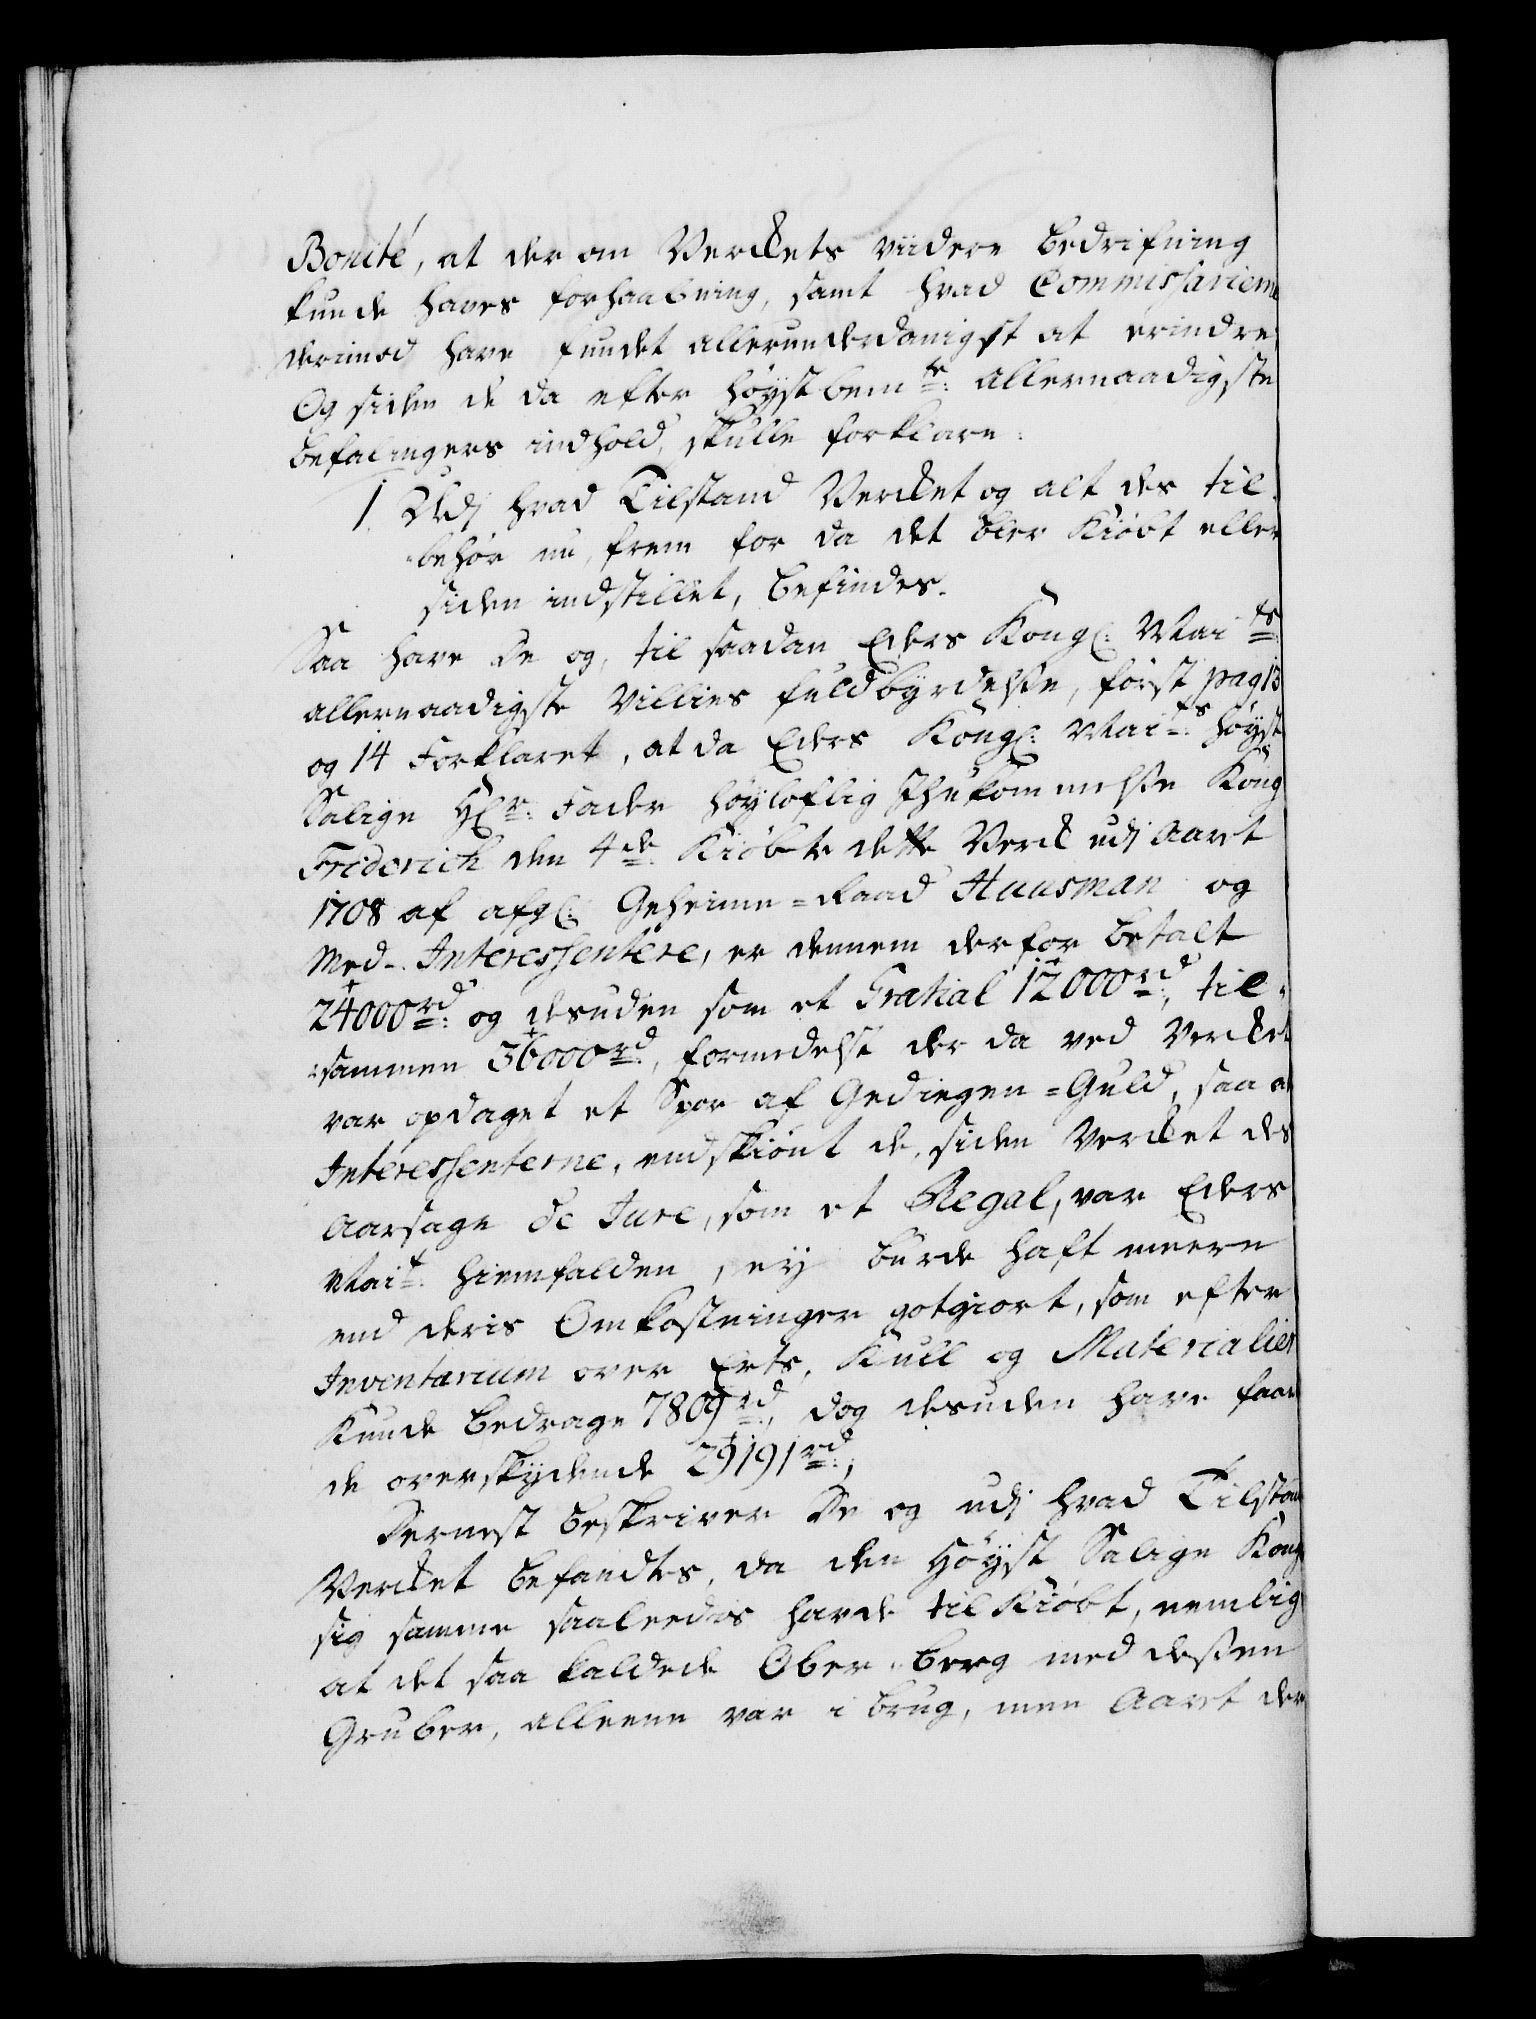 Bonité, at der om Verckets viidere bedrifning
kunde haves forhaabning, samt hvad Commissarierne
derimod have fundet allerunderdanigst at erindre
Og siden de da efter høystbemte: allernaadigste
befalingers indhold, skulle forklare:
1. Udj hvad Tilstand Vercket og alt des til-
behør nu, frem for da det blev Kiøbt eller
siden indstillet, befindes.
Saa have de og, til saadan Eders Kongl: Maits
allernaadigste Villies fuldbyrdelse, først pag 13
og 14 Forklaret, at da Eders Kongl: Maits: høyst
Salige Hr: Fader høyloflig Ihukommelse Kong
Friderich den 4de Kiøbte dette Verck udj Aaret
1708 af afgl: Geheime-Raad Huusman og
Med-Interessentere, er dennem derfor betalt
24000rd: og desuden som et Gratial 12000rd:, til-
sammen 36000rd:, formedelst der da ved Vercket
var opdaget et Spor af Gediegen-Guld, saa at
Interessenterne, endskiønt de, siden Vercket des
Aarsage de Jure, som et Regal, var Eders
Mait: hiemfalden, ey burde haft meere
end deris Omkostninger gotgiort, som efter
Inventarium over Erts, Kull og Materialier
Kunde bedrage 7809rd:, dog desuden have faaet
de overskydende 29191rd:,
Dernest beskriver De og udj hvad Tilstand
Vercket befandtes, da den Høyst Salige Kong
sig samme saaleedes havde tilKiøbt, nemlig
at det saa kaldede Ober-berg med dessen
Gruber, alleene var i brug, men Aaret der